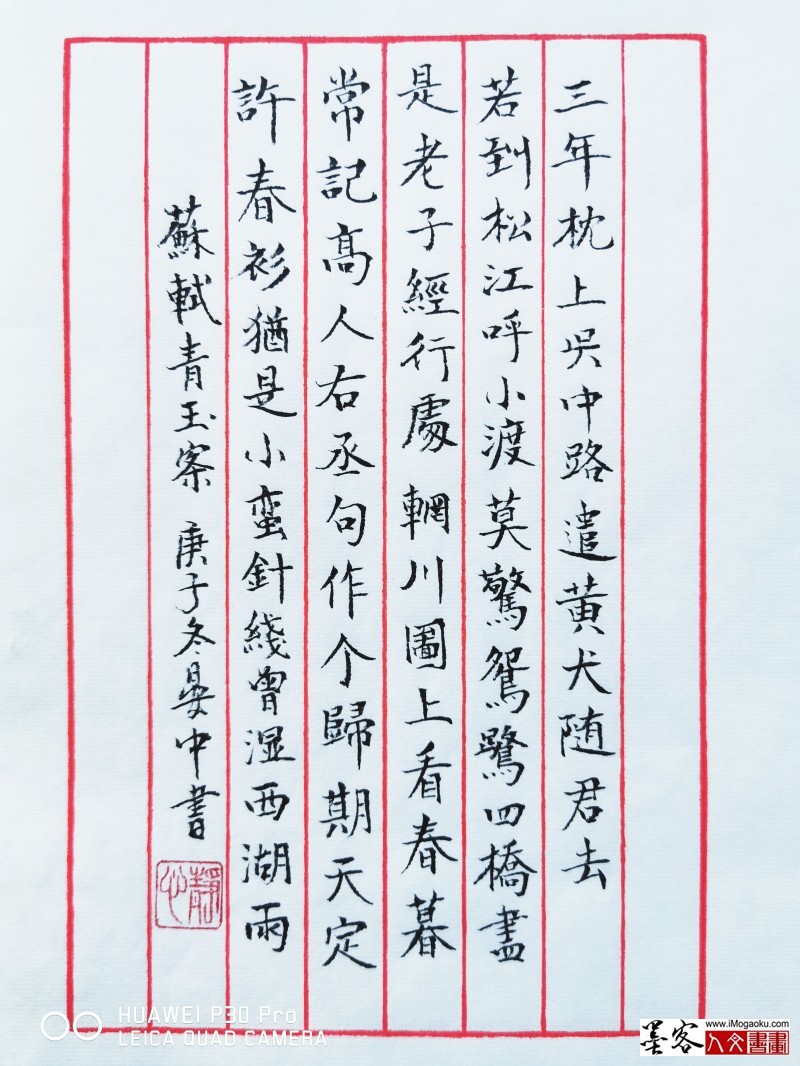 三年枕上吴中路遣黄犬随君去
若到松江呼小渡莫驚鴛鷺四橋盡
是老子經行處輞川圖上看春暮
常記高人右丞句作个歸期天定
許春衫猶是小蛮針綫曾湿西湖雨
蘇軾青玉案 庚子冬晏中書
靜心
HUAWEI P30 Pro
LEICA QUAD CAMERA
www.iMogaoku.com
墨客人文書畫